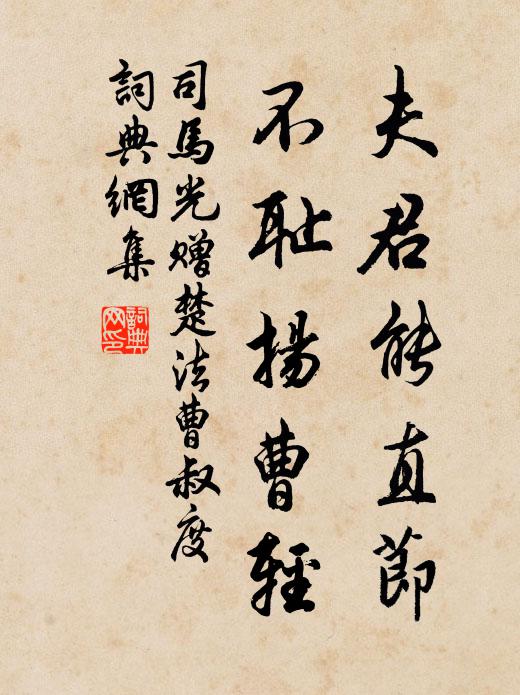 夫君能直節
不耻揚曹輕
司馬光贈楚法曹叔度
詞典網集
詞典
网印